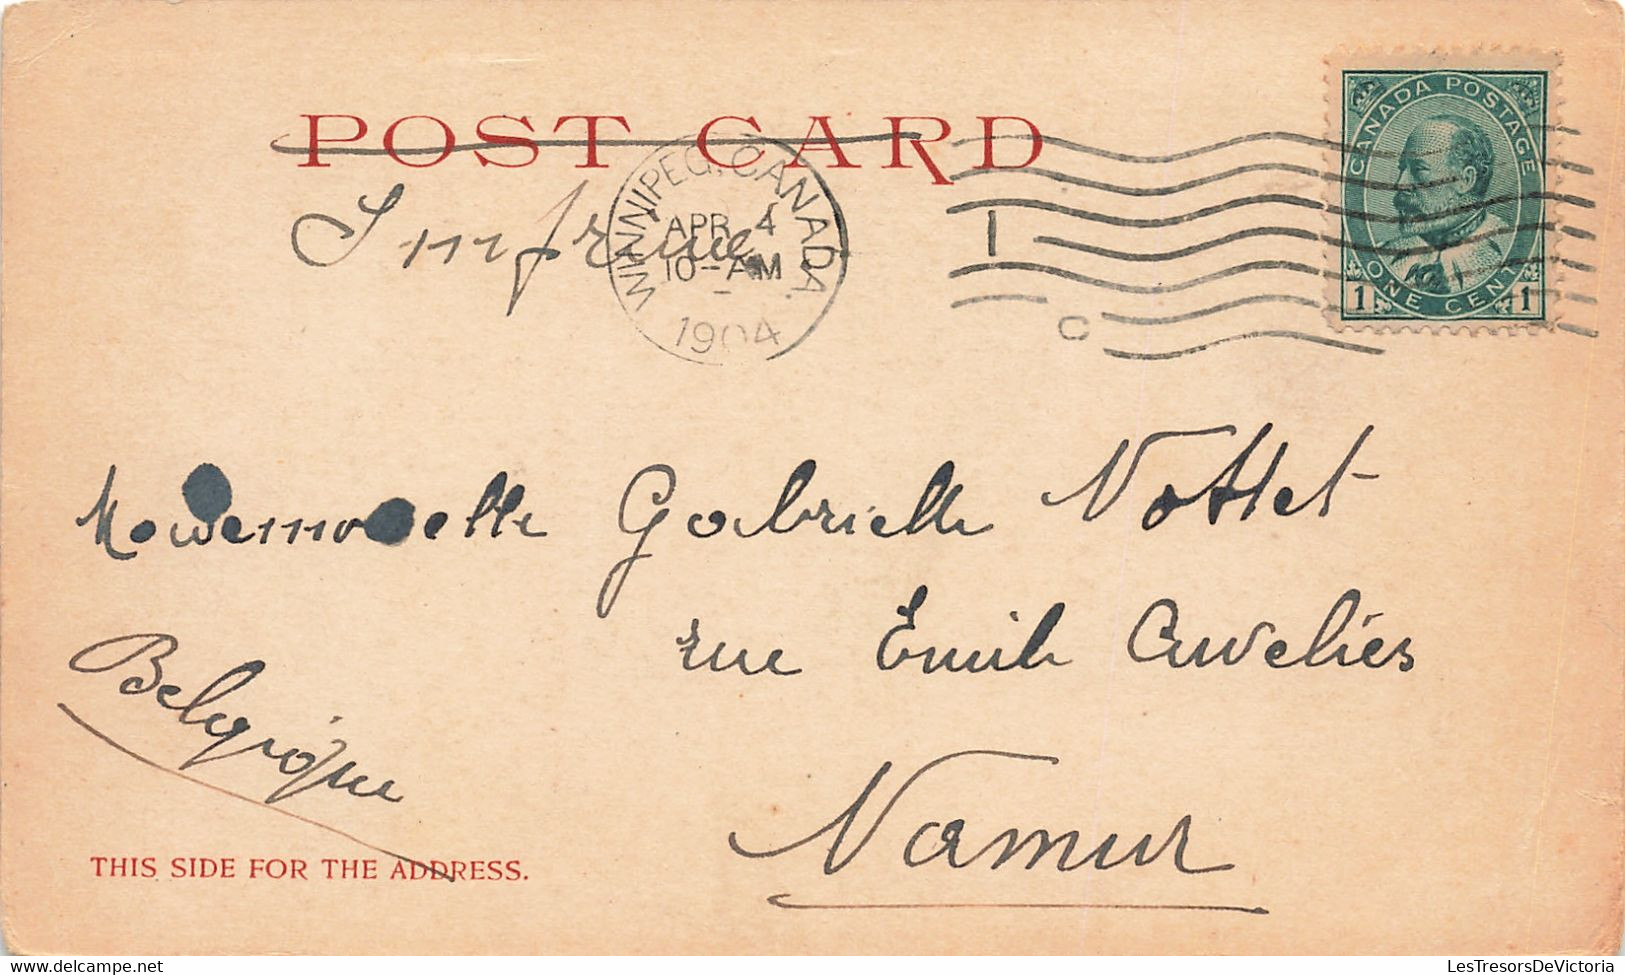 POST CARD
Imprimé
WINNIPEG, CANADA.
APR 4
10-AM
1904
I
C
CANADA POSTAGE
ONE CENT
1 1
Mademoiselle Gabrielle Nottet
rue Emile Cuvelier
Namur
Belgique
THIS SIDE FOR THE ADDRESS.
delcampe.net
LesTresorsDeVictoria